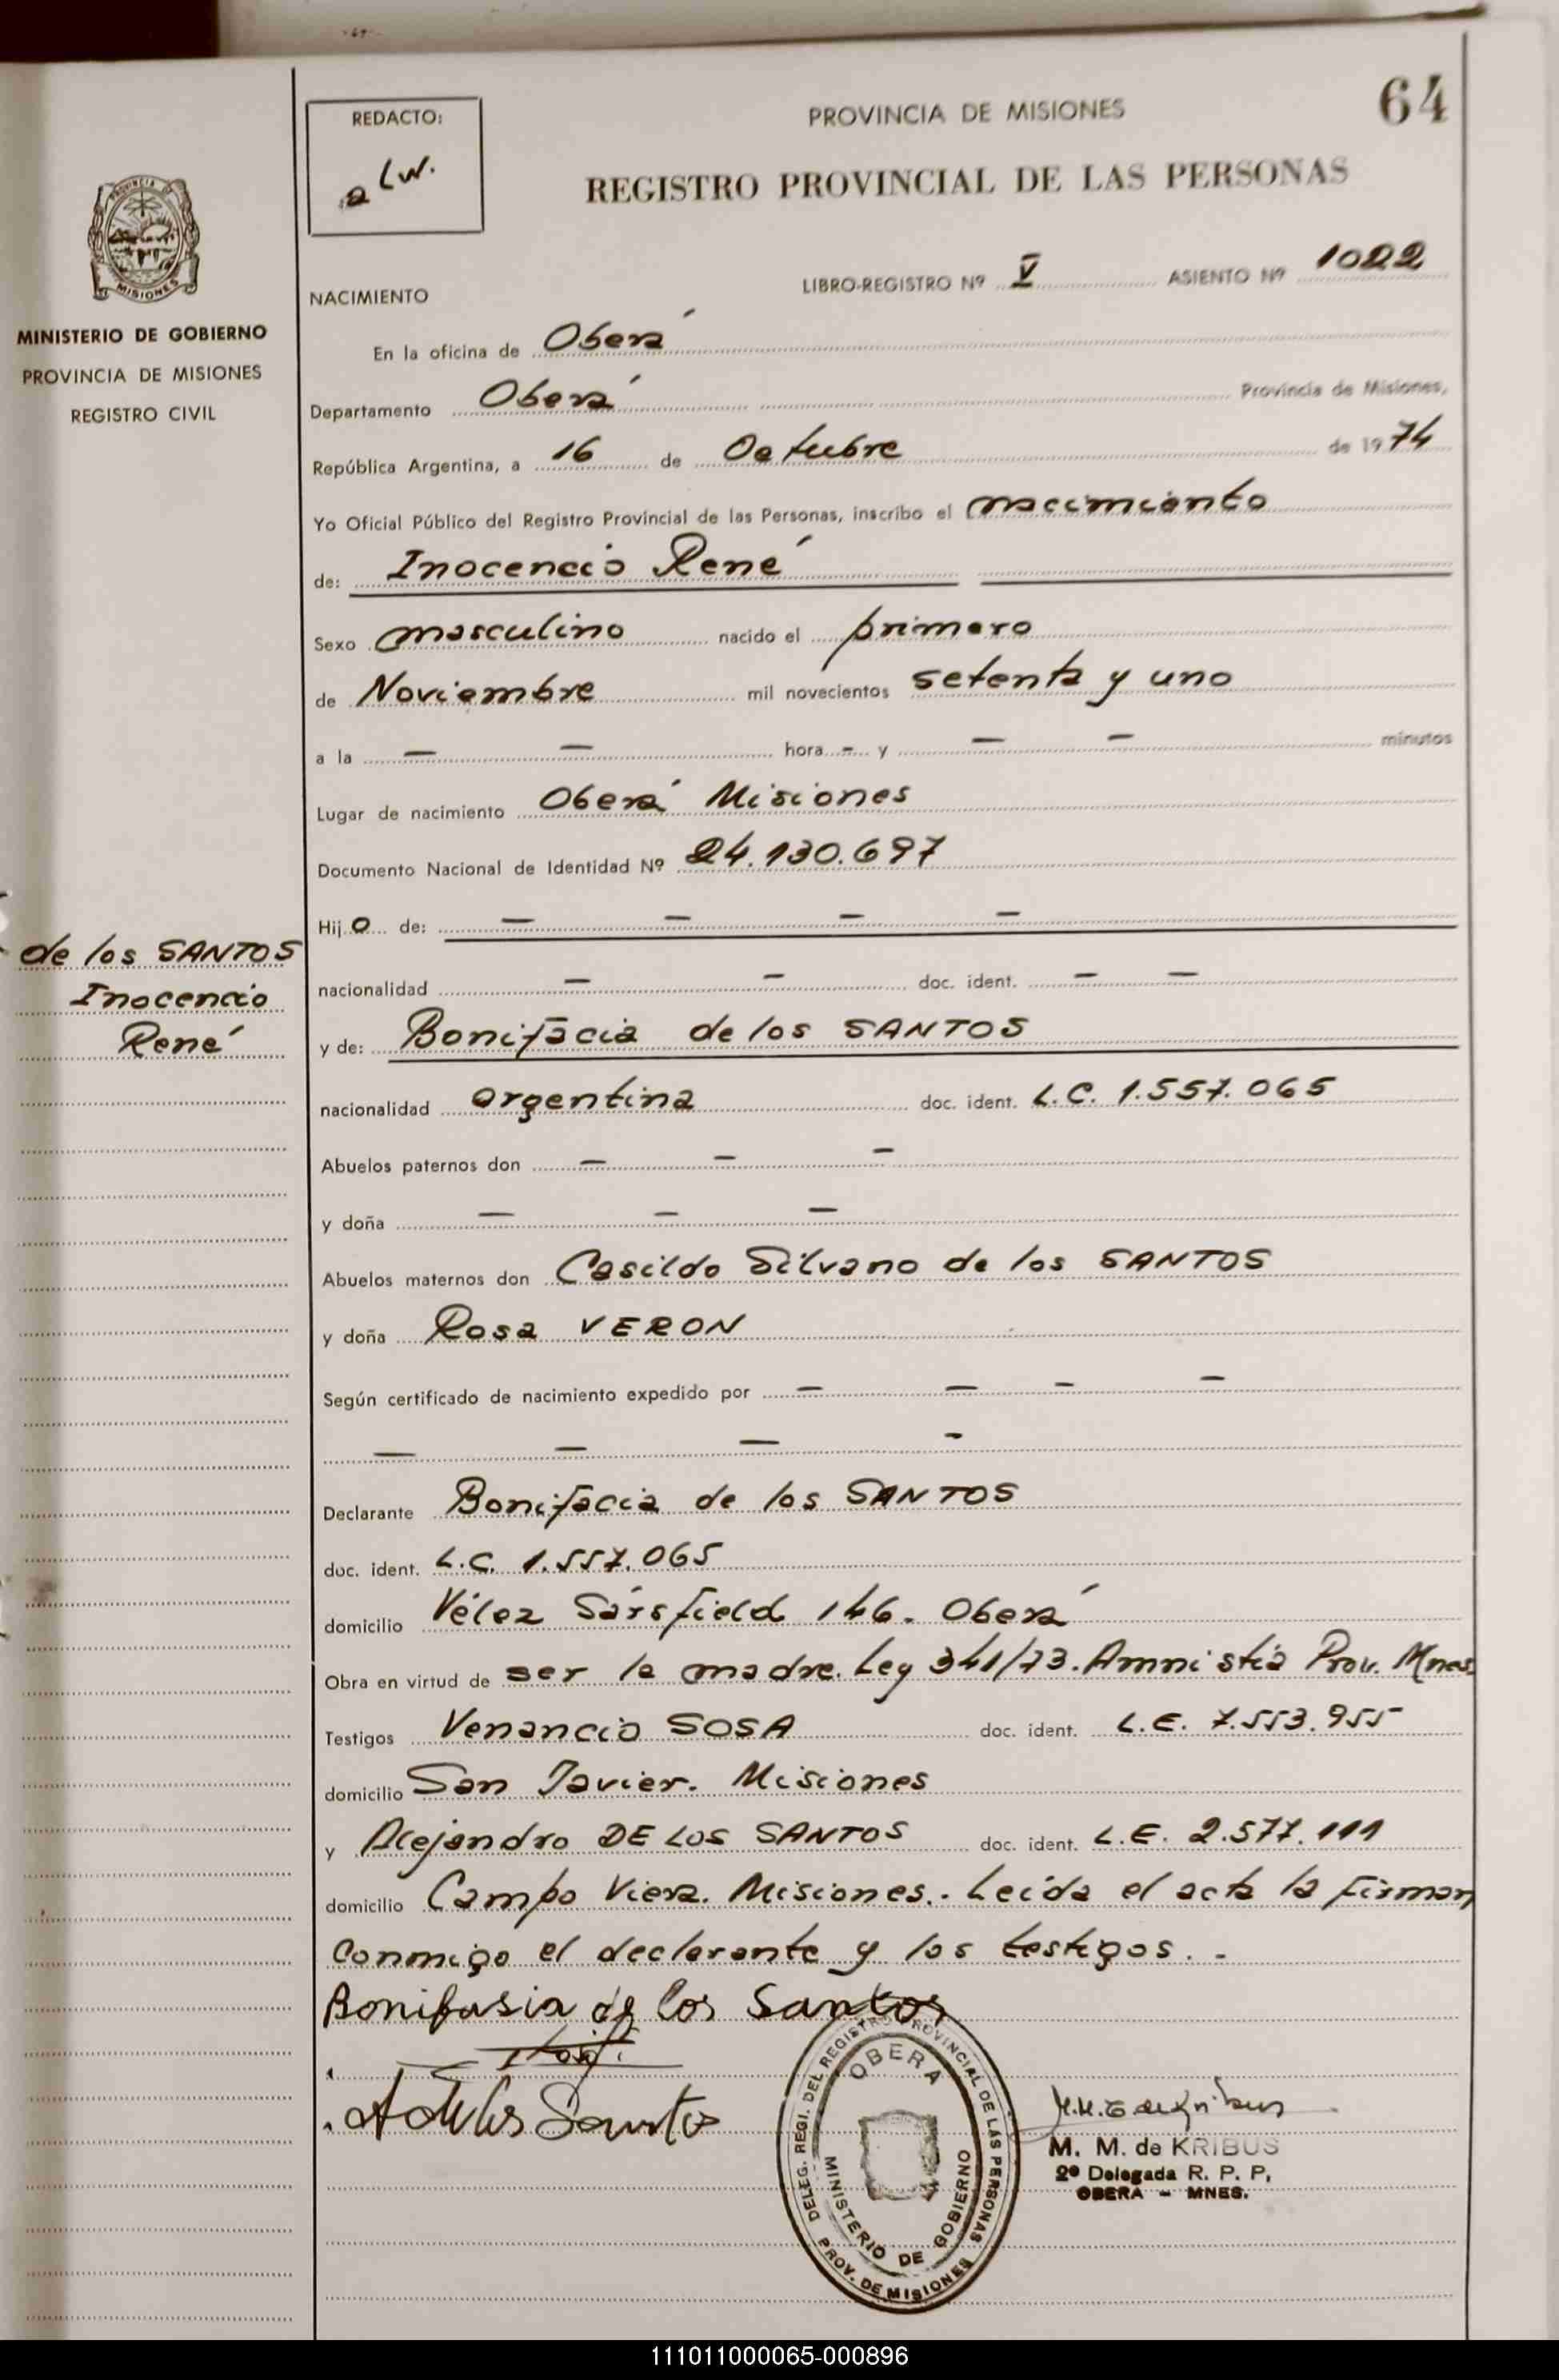 64
REDACTO:
PROVINCIA DE MISIONES
REGISTRO PROVINCIAL DE LAS PERSONAS
LIBRO-REGISTRO Nº V ASIENTO Nº 1022
PROVINCIA
MISIONES
MINISTERIO DE GOBIERNO
PROVINCIA DE MISIONES
REGISTRO CIVIL
NACIMIENTO
En la oficina de Oberá
Departamento Oberá Provincia de Misiones,
República Argentina, a 16 de Octubre de 1974
Yo Oficial Público del Registro Provincial de las Personas, inscribo el nacimiento
de: Inocencio René
Sexo masculino nacido el primero
de Noviembre mil novecientos setenta y uno
a la — — hora - y — — minutos
Lugar de nacimiento Oberá Misiones
Documento Nacional de Identidad Nº 24.130.697
Hijo de: — — — —
de los SANTOS
Inocencio
René
nacionalidad — — doc. ident. — —
y de: Bonifacia de los SANTOS
nacionalidad argentina doc. ident. L.C. 1.557.065
Abuelos paternos don — — —
y doña — — —
Abuelos maternos don Casildo Silvano de los SANTOS
y doña Rosa VERON
Según certificado de nacimiento expedido por — — — —
— — — -
Declarante Bonifacia de los SANTOS
doc. ident. L.C. 1.557.065
domicilio Vélez Sársfield 146. Oberá
Obra en virtud de ser la madre. Ley 341/73. Amnistía Prov. Mnes.
Testigos Venancio SOSA doc. ident. L.E. 7.553.955
domicilio San Javier. Misiones
y Alejandro DE LOS SANTOS doc. ident. L.E. 2.577.111
domicilio Campo Viera. Misiones.- Leída el acta la firman
conmigo el declarante y los testigos. -
Bonifasia de los Santos
A de los Santos
DELEG. REGI. DEL REGISTRO PROVINCIAL DE LAS PERSONAS
OBERA
MINISTERIO DE GOBIERNO
PROV. DE MISIONES
M. M. de KRIBUS
2º Delegada R. P. P.
OBERA - MNES.
111011000065-000896